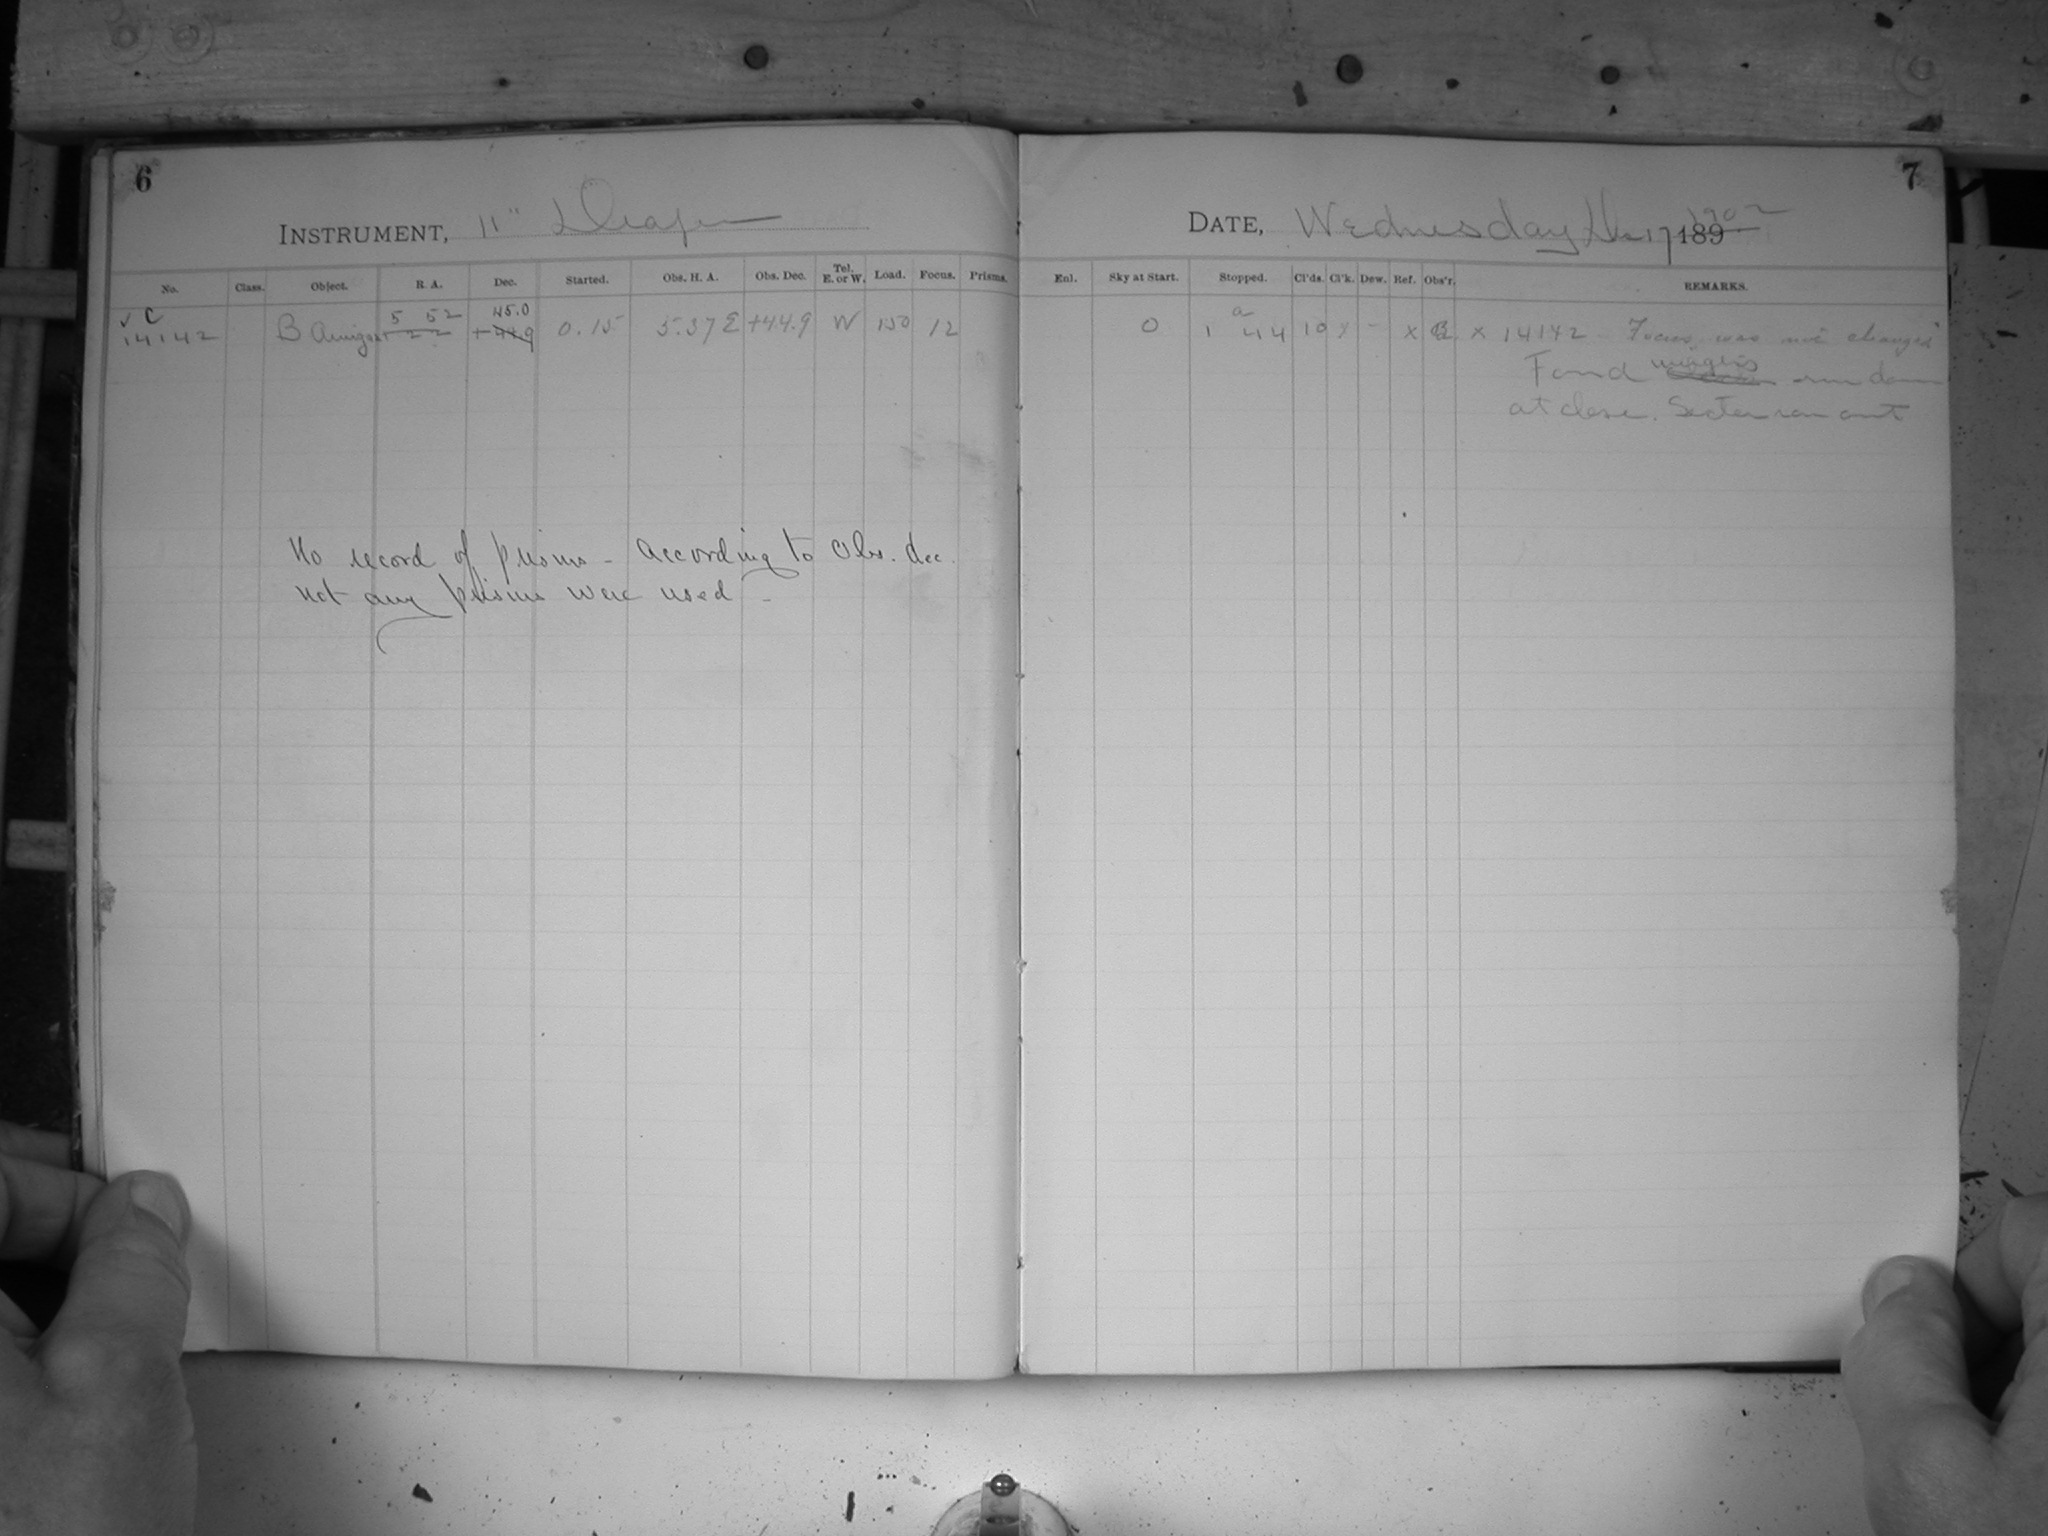 6
INSTRUMENT, 11" Draper
No. Class. Object. R. A. Dec. Started. Obs. H. A. Obs. Dec. Tel. E. or W. Load. Focus. Prisms.
√ C 5 52 45.0
14142 B Aurigae +44.9 0.15 5.37 E +44.9 W 150 12
No record of prisms - According to Obs. dec.
not any prisms were used -
7
DATE, Wednesday Dec 17 189 1902
Enl. Sky at Start. Stopped. Cl'ds. Cl'k. Dew. Ref. Obs'r. REMARKS.
0 1 a 44 10 y - x x 14142 - Focus was not changed
Found weights run down
at close. Sector ran out